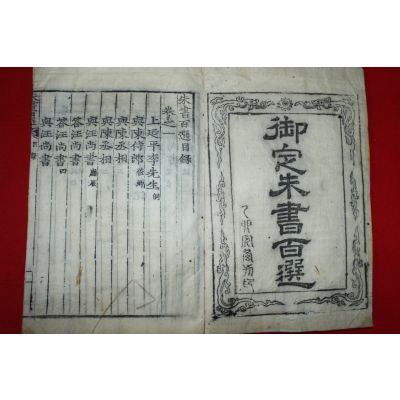 御定朱書百選
朱書百選目錄
卷之一
上延平李先生
與陳侍郎
與陳丞相
與陳丞相
與汪尚書
答汪尚書
答汪尚書四
與汪尚書